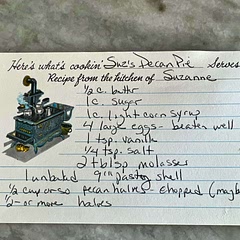 Here's what's cookin' Suz's Pecan Pie Serves
Recipe from the kitchen of Suzanne
½ c. buttr
1 c. sugar
1 c. light corn syrup
4 large eggs - beaten well
1 tsp. vanilla
¼ tsp. salt
2 tblsp molasses
1 unbaked 9" pastry shell
½ cup or so pecan halves chopped (maybe
2 - or more halves